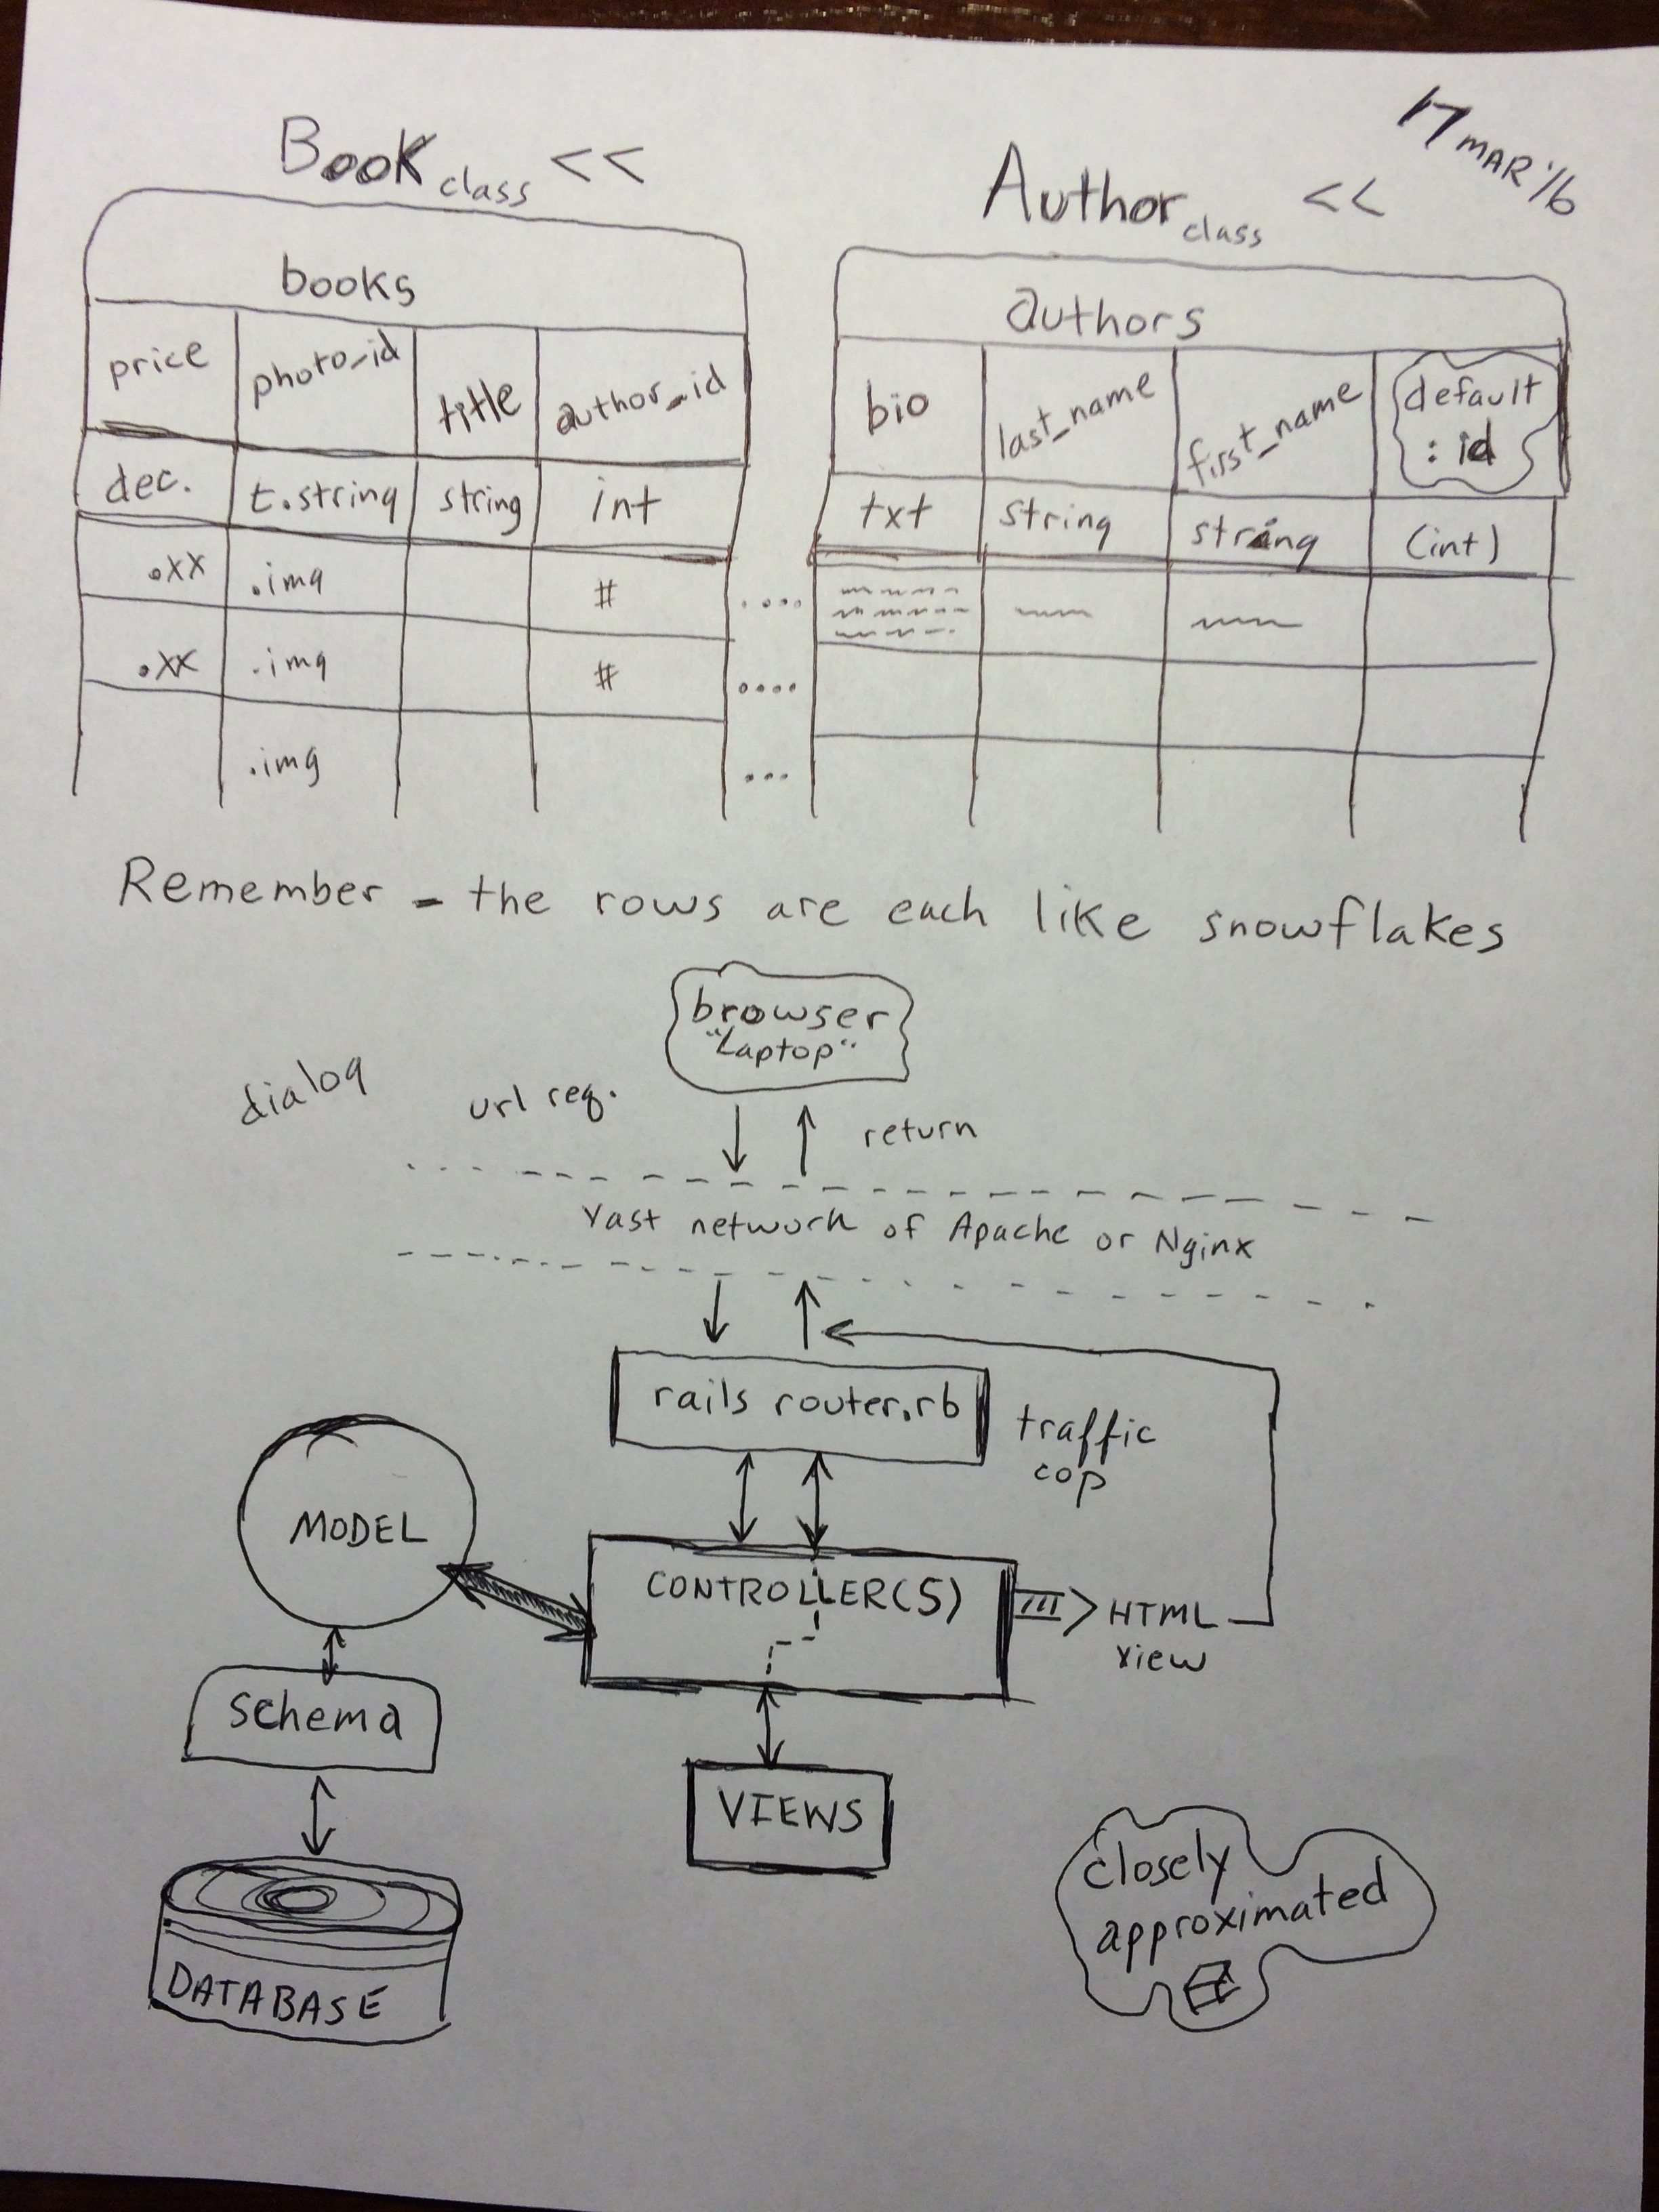 17 MAR '16
Book class <<
Author class <<
books
price photo_id title author_id
dec. t.string string int
.xx .img # ....
.xx .img # ....
.img ...
authors
bio last_name first_name default
: id
txt string string (int)
Remember - the rows are each like snowflakes
browser
"Laptop"
dialog url req. return
Vast network of Apache or Nginx
rails router.rb
traffic
cop
MODEL
CONTROLLER(S)
HTML
view
schema
VIEWS
DATABASE
closely
approximated